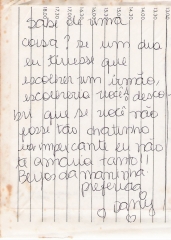 coisa? se um dia
eu tivesse que
escolher um irmão,
escolheria você! desco-
bri que se você não
fosse tão chatinho
implicante eu não
te amaria tanto!!
Beijos da maninha
preferida
Dany